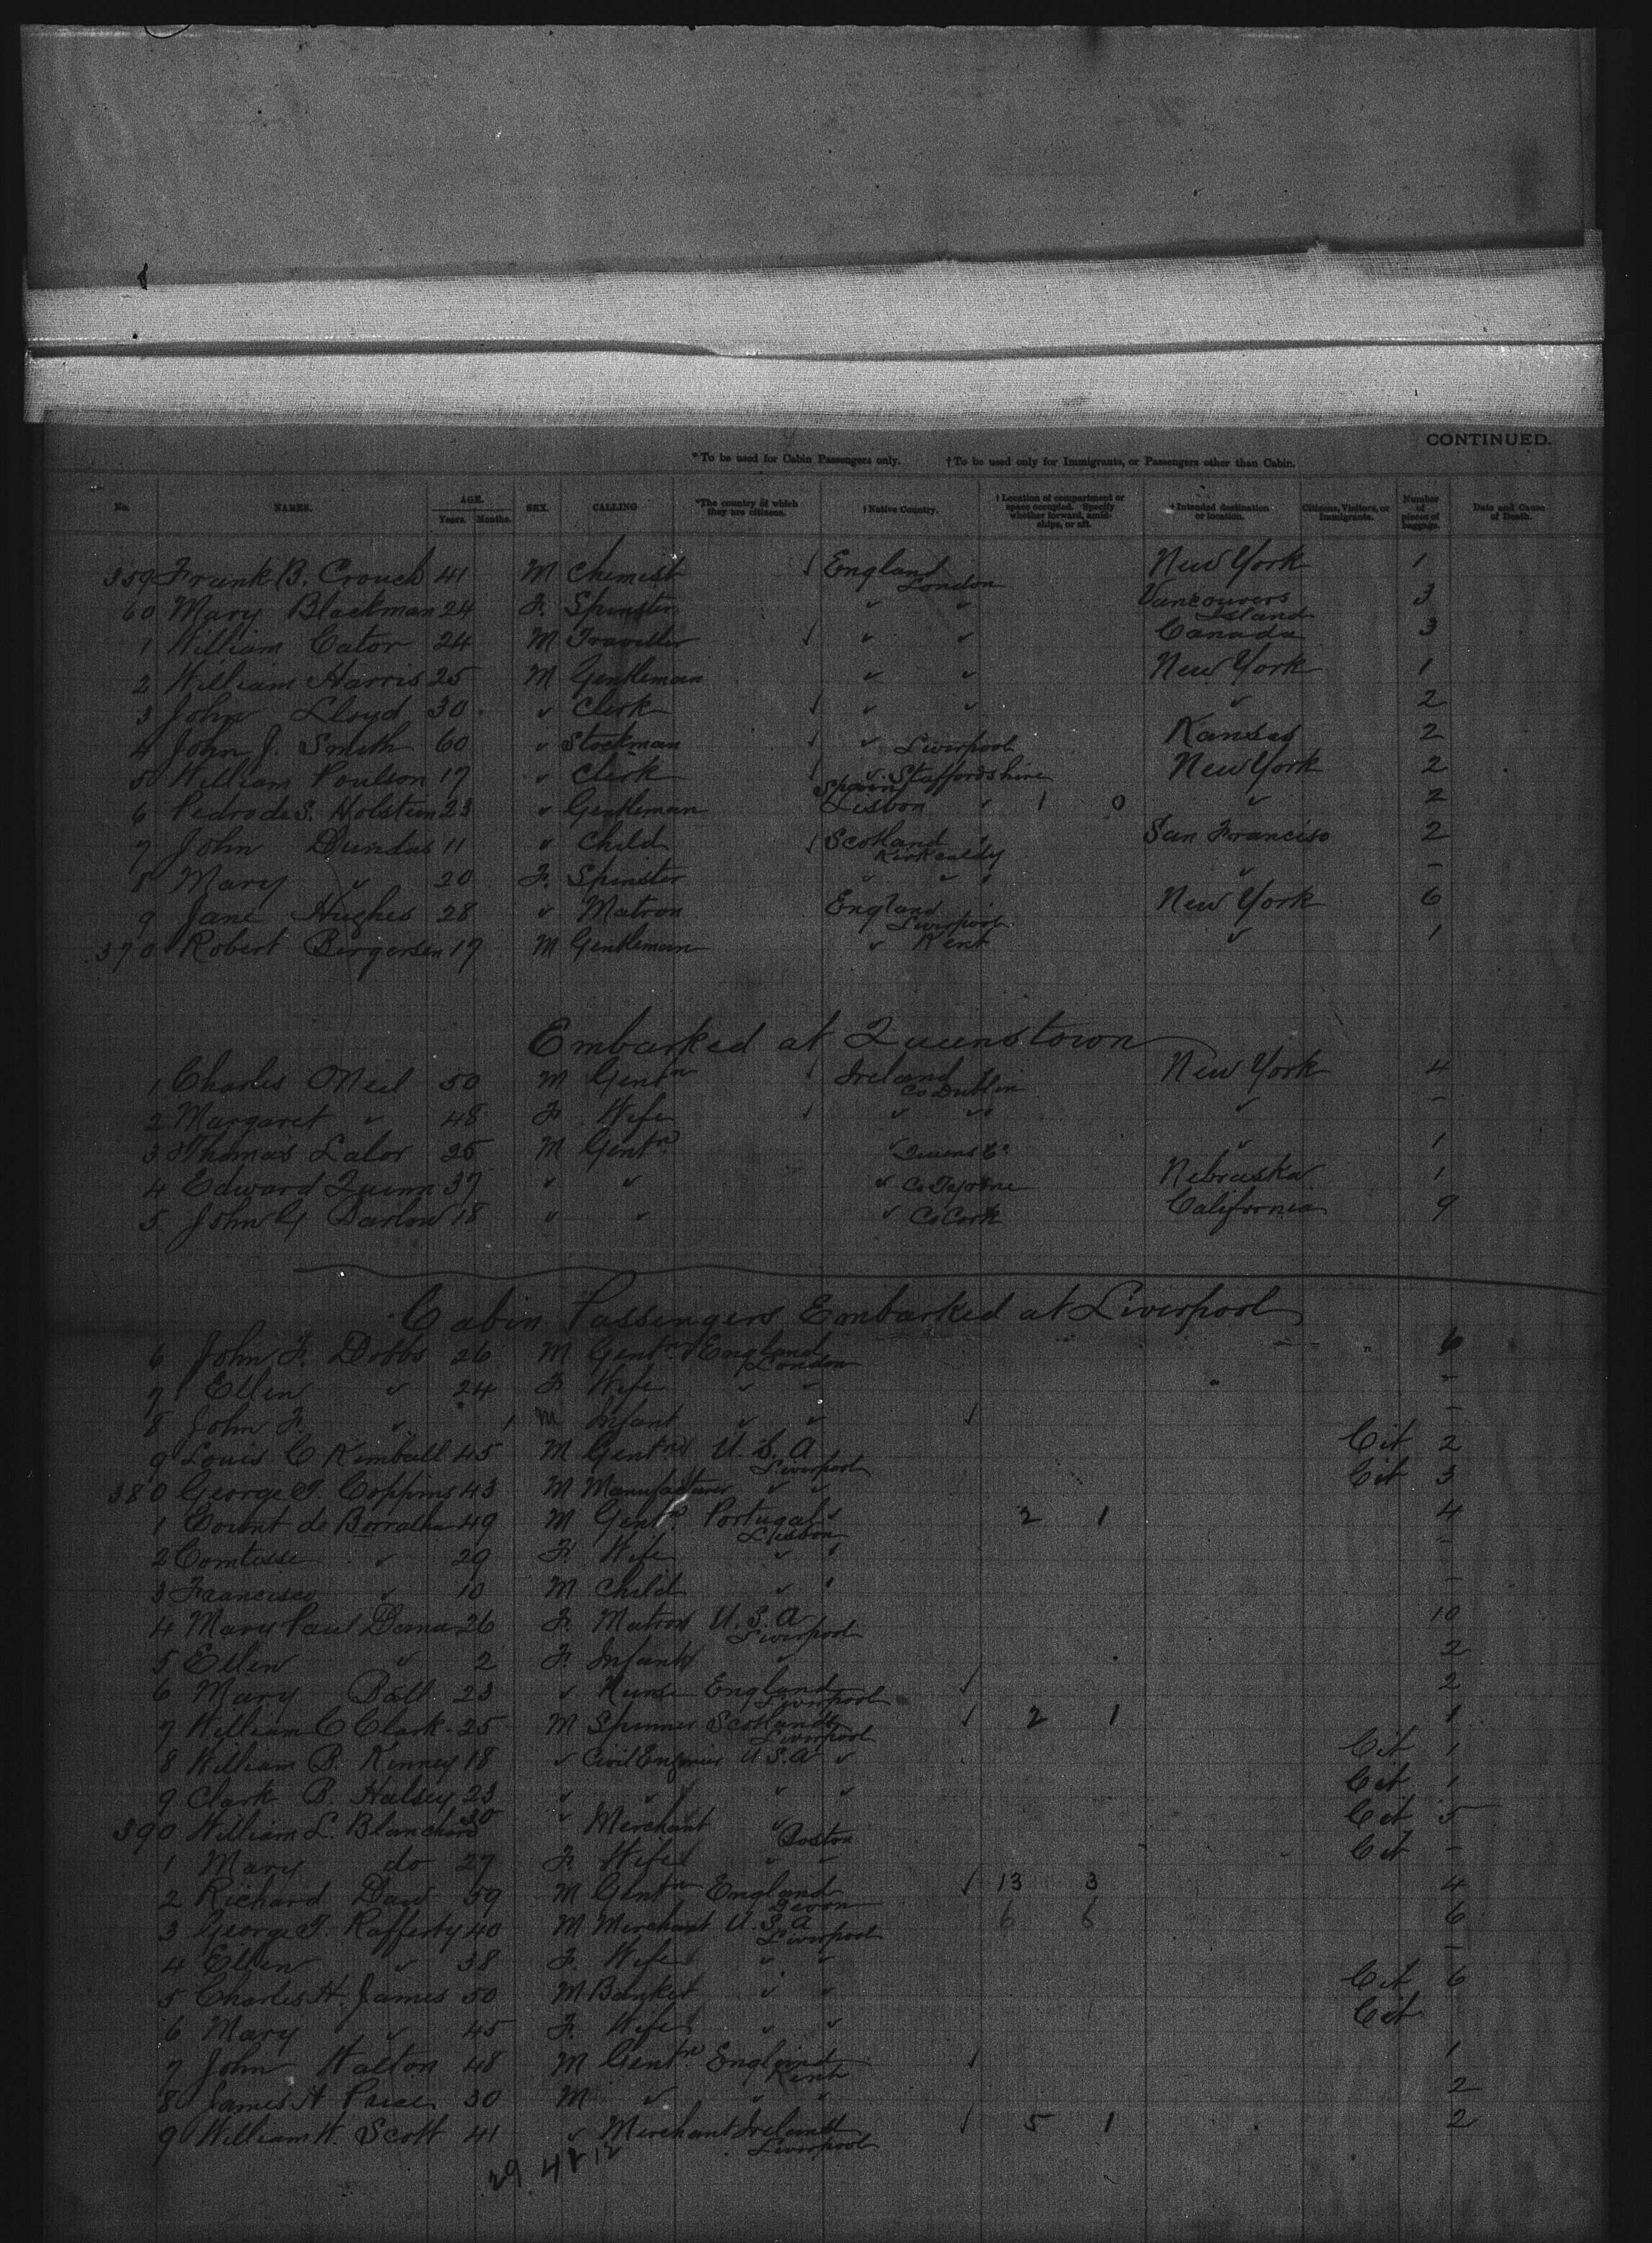 CONTINUED.
*To be used for Cabin Passengers only. †To be used only for Immigrants, or Passengers other than Cabin.
No. NAMES. AGE. Years. Months. SEX. CALLING *The country of which they are citizens. †Native Country. †Location of compartment or space occupied. Specify whether forward, amidships, or aft. †Intended destination or location. Citizens, Visitors, or Immigrants. Number of pieces of baggage. Date and Cause of Death.
359 Frank B. Crouch 41 M Chemist England London New York 1
60 Mary Blackman 24 F. Spinster " " Vancouvers Island 3
1 William Cator 24 M Traveller " " Canada 3
2 William Harris 25 M Gentleman " " New York 1
3 John Lloyd 30 " Clerk " " " 2
4 John J. Smith 60 " Stockman " Liverpool Kansas 2
5 William Poulson 17 " Clerk " Staffordshire New York 2
6 Pedro de S. Holstein 23 " Gentleman Spain Lisbon 1 0 " 2
7 John Dundas 11 " Child Scotland Kirkcaldy San Francisco 2
8 Mary " 20 F. Spinster " " " -
9 Jane Hughes 28 " Matron England Liverpool New York 6
370 Robert Bergersen 17 M Gentleman " Kent " 1
Embarked at Queenstown
1 Charles ONeil 50 M Gentn Ireland Co Dublin New York 4
2 Margaret " 48 F. Wife " " " -
3 Thomas Lalor 25 M Gentn " Queens Co " 1
4 Edward Quinn 37 " " " Co Nebraska 1
5 John G Darlow 18 " " " Co Cork California 9
Cabin Passengers Embarked at Liverpool
6 John F. Dobbs 26 M Gentn England London 6
7 Ellen " 24 F Wife " " -
8 John F. " 1 M Infant " " -
9 Louis C Kimball 45 M Gentn U.S.A Liverpool Cit 2
380 George T. Coppins 43 M Manufacturer " " Cit 3
1 Count de Borralha 49 M Gentn Portugal Lisbon 2 1 4
2 Comtesse " 29 F. Wife " " -
3 Francisco " 10 M Child " " -
4 Mary Paul 26 F. Matron U.S.A Liverpool 10
5 Ellen " 2 F. Infant " 2
6 Mary Ball 23 " Nurse England Liverpool 2
7 William C Clark 25 M Spinner Scotland Liverpool 2 1 1
8 William B. Kinney 18 " Civil Engineer U.S.A " Cit 1
9 Clark B. Halsey 23 " " " " Cit 1
390 William L. Blanchard 30 " Merchant " Boston Cit 5
1 Mary do 27 F. Wife " " Cit -
2 Richard Daw 59 M Gentn England Devon 13 3 4
3 George T. Rafferty 40 M Merchant U.S.A Liverpool 6 6 6
4 Ellen " 38 F. Wife " " -
5 Charles H. James 50 M Banker " " Cit 6
6 Mary " 45 F. Wife " " Cit
7 John Walton 48 M Gentn England Kent 1
8 James A Price 30 M " " " 2
9 William H. Scott 41 " Merchant Ireland Liverpool 5 1 2
29 48 12